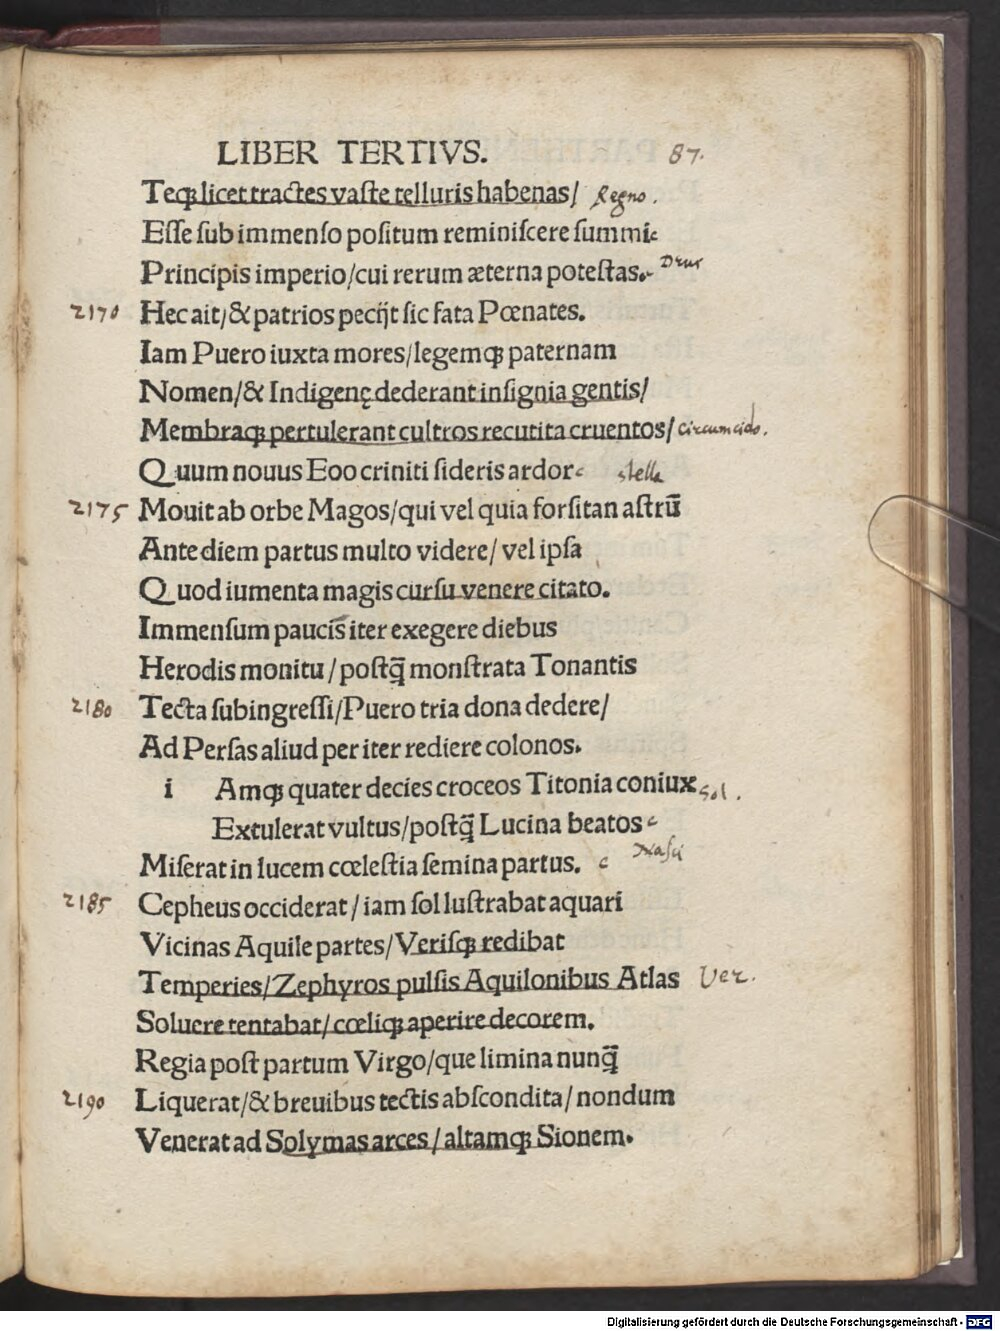 LIBER TERTIVS. 87.
Teqꝫ licet tractes vaſte telluris habenas/ Regno.
Eſſe ſub immenſo poſitum reminiſcere ſummi
Principis imperio/cui rerum æterna poteſtas. Deus
2170 Hec ait/& patrios pecijt ſic fata Pœnates.
Iam Puero iuxta mores/legemqꝫ paternam
Nomen/& Indigenę dederant inſignia gentis/
Membraqꝫ pertulerant cultros recutita cruentos/ circumcido.
Quum nouus Eoo criniti ſideris ardor stella
2175 Mouit ab orbe Magos/qui vel quia forſitan aſtrū
Ante diem partus multo videre/ vel ipſa
Quod iumenta magis curſu venere citato.
Immenſum paucis iter exegere diebus
Herodis monitu/poſtq̄ monſtrata Tonantis
2180 Tecta ſubingreſſi/Puero tria dona dedere/
Ad Perſas aliud per iter rediere colonos.
i Amqꝫ quater decies croceos Titonia coniux Sol.
Extulerat vultus/poſtq̄ Lucina beatos
Miſerat in lucem cœleſtia ſemina partus. Nasci
2185 Cepheus occiderat/iam ſol luſtrabat aquari
Vicinas Aquile partes/Veriſqꝫ redibat
Temperies/Zephyros pulſis Aquilonibus Atlas Ver.
Soluere tentabat/cœliqꝫ aperire decorem.
Regia poſt partum Virgo/que limina nunq̄
2190 Liquerat/& breuibus tectis abſcondita/nondum
Venerat ad Solymas arces/altamqꝫ Sionem.
Digitalisierung gefördert durch die Deutsche Forschungsgemeinschaft - DFG